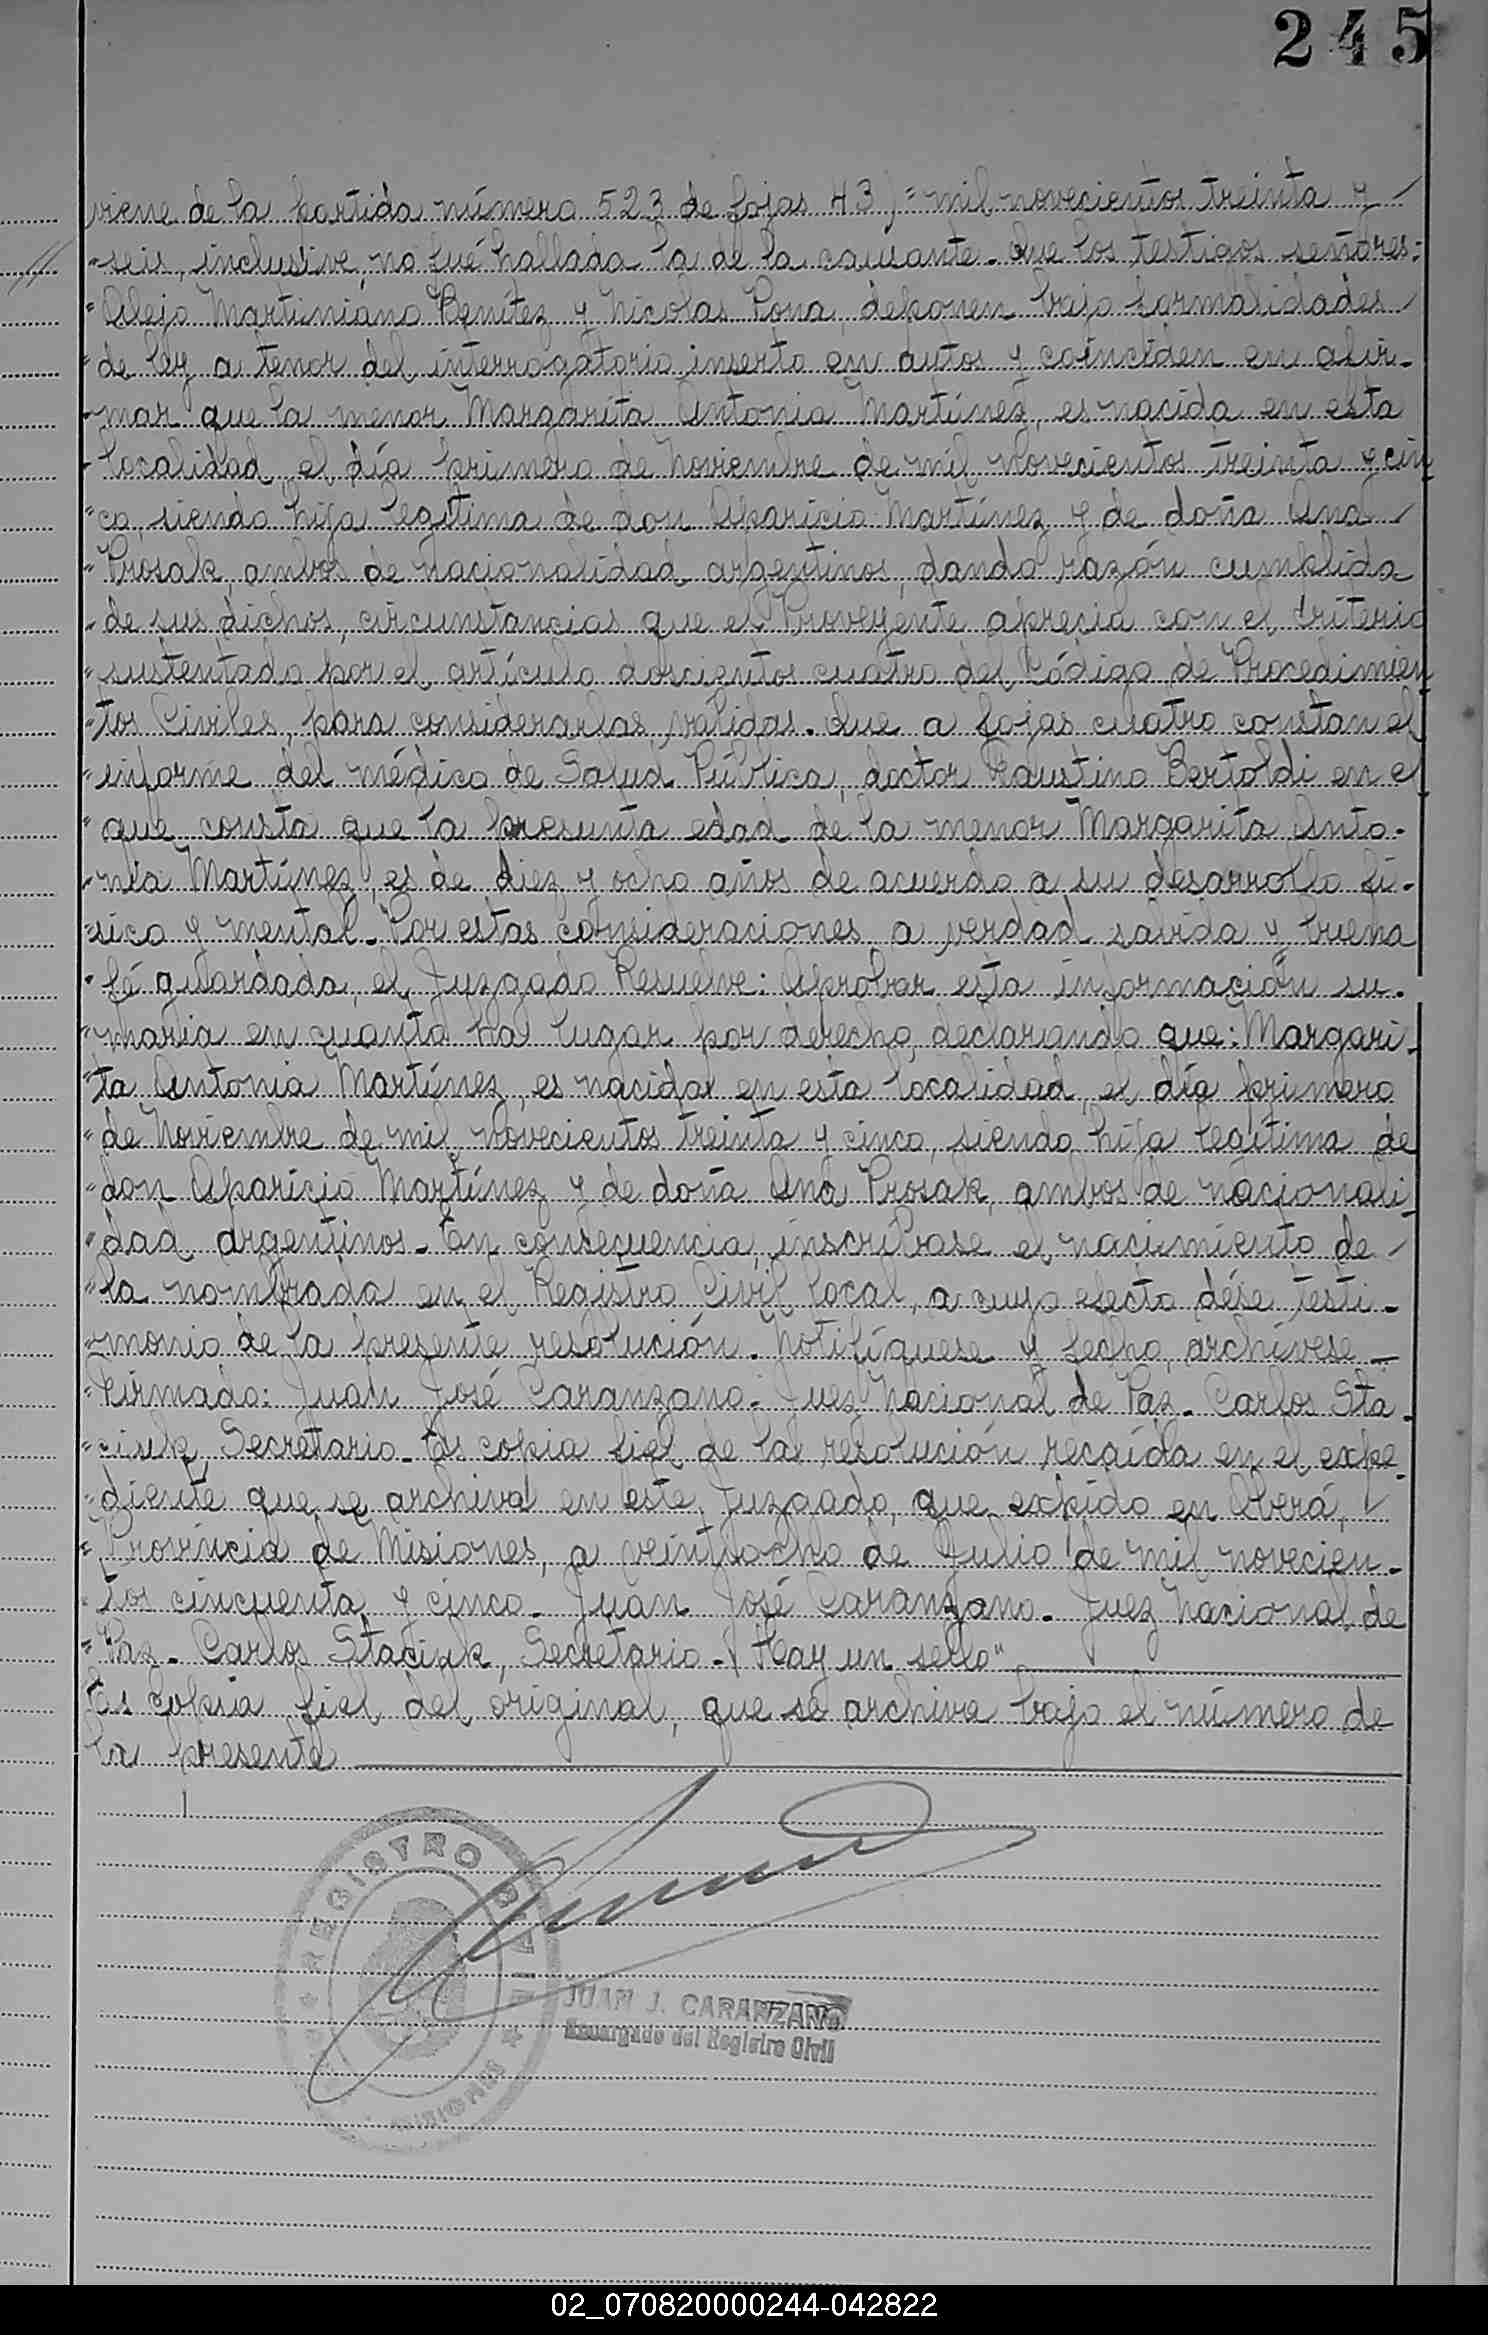 245
viene de la partida número 523 de fojas 43) = mil novecientos treinta y
"seis, inclusive no fué hallada la de la causante. Que los testigos señores:
"Alejo Martiniano Benítez y Nicolas Pona, deponen bajo formalidades
"de ley a tenor del interrogatorio inserto en autos y coinciden en afir-
"mar que la menor Margarita Antonia Martínez, es nacida en esta
"localidad el día primero de Noviembre de mil novecientos treinta y cin
"co, siendo hija legítima de don Aparicio Martínez y de doña Ana
"Prosak, ambos de nacionalidad argentinos, dando razón cumplida
"de sus dichos, circunstancias que el Proveyente aprecia con el criterio
"sustentado por el artículo doscientos cuatro del Código de Procedimien
"tos Civiles, para considerarlas validas. Que a fojas cuatro constan el
"informe del médico de Salud Pública, doctor Faustino Bertoldi en el
"que consta que la presunta edad de la menor Margarita Anto-
"nia Martínez, es de diez y ocho años de acuerdo a su desarrollo fí-
"sico y mental. Por estas consideraciones a verdad sabida y buena
"fé guardada, el Juzgado Resuelve: Aprobar esta información su-
"maria en cuanto ha lugar por derecho, declarando que: Margari-
"ta Antonia Martínez, es nacida en esta localidad, el día primero
"de Noviembre de mil novecientos treinta y cinco, siendo hija legítima de
"don Aparicio Martínez y de doña Ana Prosak, ambos de nacionali
"dad argentinos. En consecuencia, inscríbase el nacimiento de
"la nombrada en el Registro Civil local, a cuyo efecto dése testi-
"monio de la presente resolución. Notifíquese y fecho, archívese -
"Firmado: Juan José Caranzano. Juez Nacional de Paz. Carlos Sta-
"ciuk, Secretario. Es copia fiel de la resolución recaída en el expe-
"diente que se archiva en este Juzgado, que expido en Oberá,
"Provincia de Misiones, a veintiocho de Julio de mil novecien-
"tos cincuenta y cinco. Juan José Caranzano. Juez Nacional de
"Paz. Carlos Staciuk, Secretario - Hay un sello"
Es copia fiel del original, que se archiva bajo el número de
la presente
REGISTRO CIVIL
MISIONES
JUAN J. CARANZANO
Encargado del Registro Civil
02_070820000244-042822